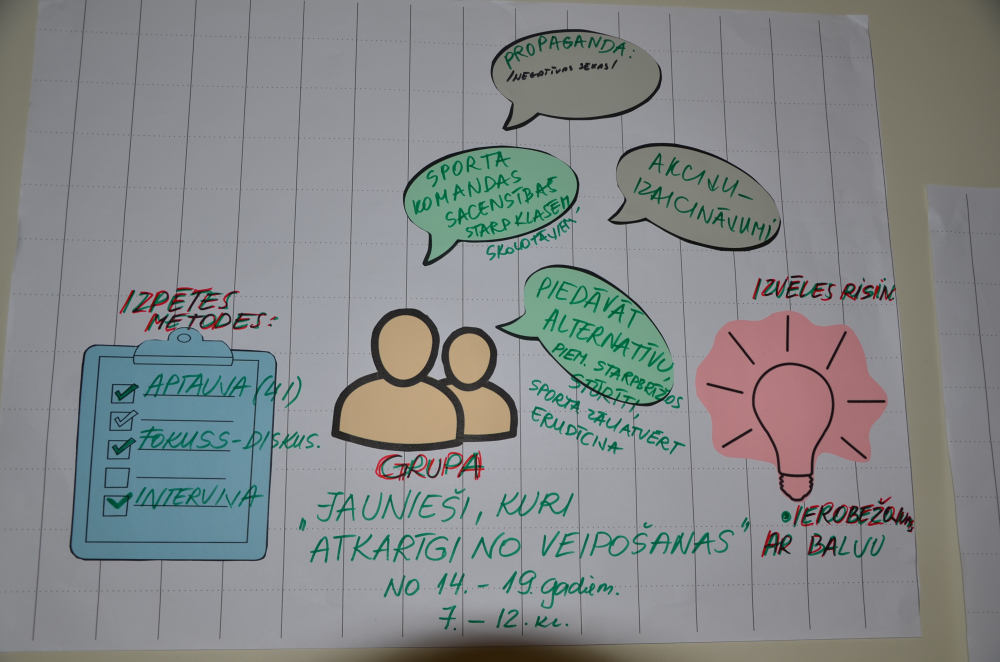 PROPAGANDA:
/NEGATĪVAS SEKAS/
SPORTA
KOMANDAS
SACENSĪBAS
STARP KLASĒM,
SKOLOTĀJIEM
AKCIJU-
IZAICINĀJUMI
PIEDĀVĀT
ALTERNATĪVU,
PIEM. STARPBRĪŽOS
STŪRĪTI,
SPORTA ZĀLI ATVĒRT
ERUDĪCIJA
IZPĒTES
METODES:
APTAUJA (41)
FOKUSS-DISKUS.
INTERVIJA
GRUPA
"JAUNIEŠI, KURI
ATKARĪGI NO VEIPOŠANAS"
NO 14. - 19. gadiem.
7. - 12. kl.
IZVĒLES RISIN.
• IEROBEŽOJUMS
AR BALVU